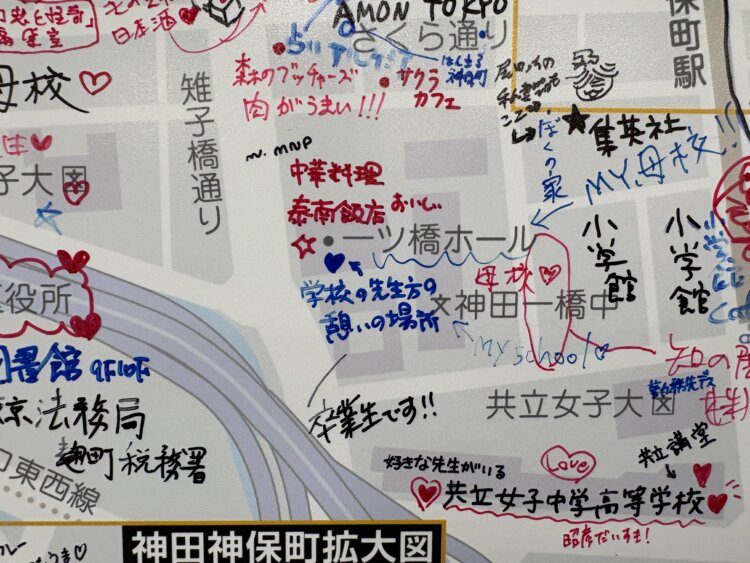 日本酒
AMON TOKYO
さくら通り
保町駅
森のブッチャーズ
肉がうまい!!!
サクラ
カフェ
母校
雉子橋通り
集英社
ぼくの家
MY 母校!!
中華料理
泰南飯店 おいしい
一ツ橋ホール
小学館
小学館
母校
学校の先生方の
憩いの場所
神田一橋中
My school
子大
区役所
図書館 9F10F
京法務局
麹町税務署
東西線
卒業生です!!
知の
共立女子大
好きな先生がいる
Love
共立講堂
共立女子中学高等学校
神田神保町拡大図